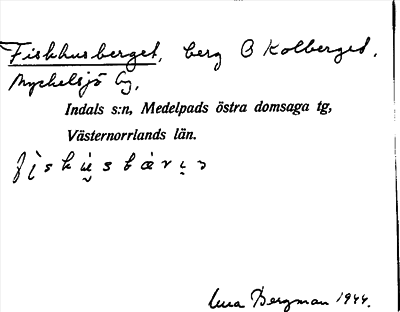 Fiskhusberget, berg Ö Kolberget,
Myckelsjö by,
Indals s:n, Medelpads östra domsaga tg,
Västernorrlands län.
Bergman 1944.